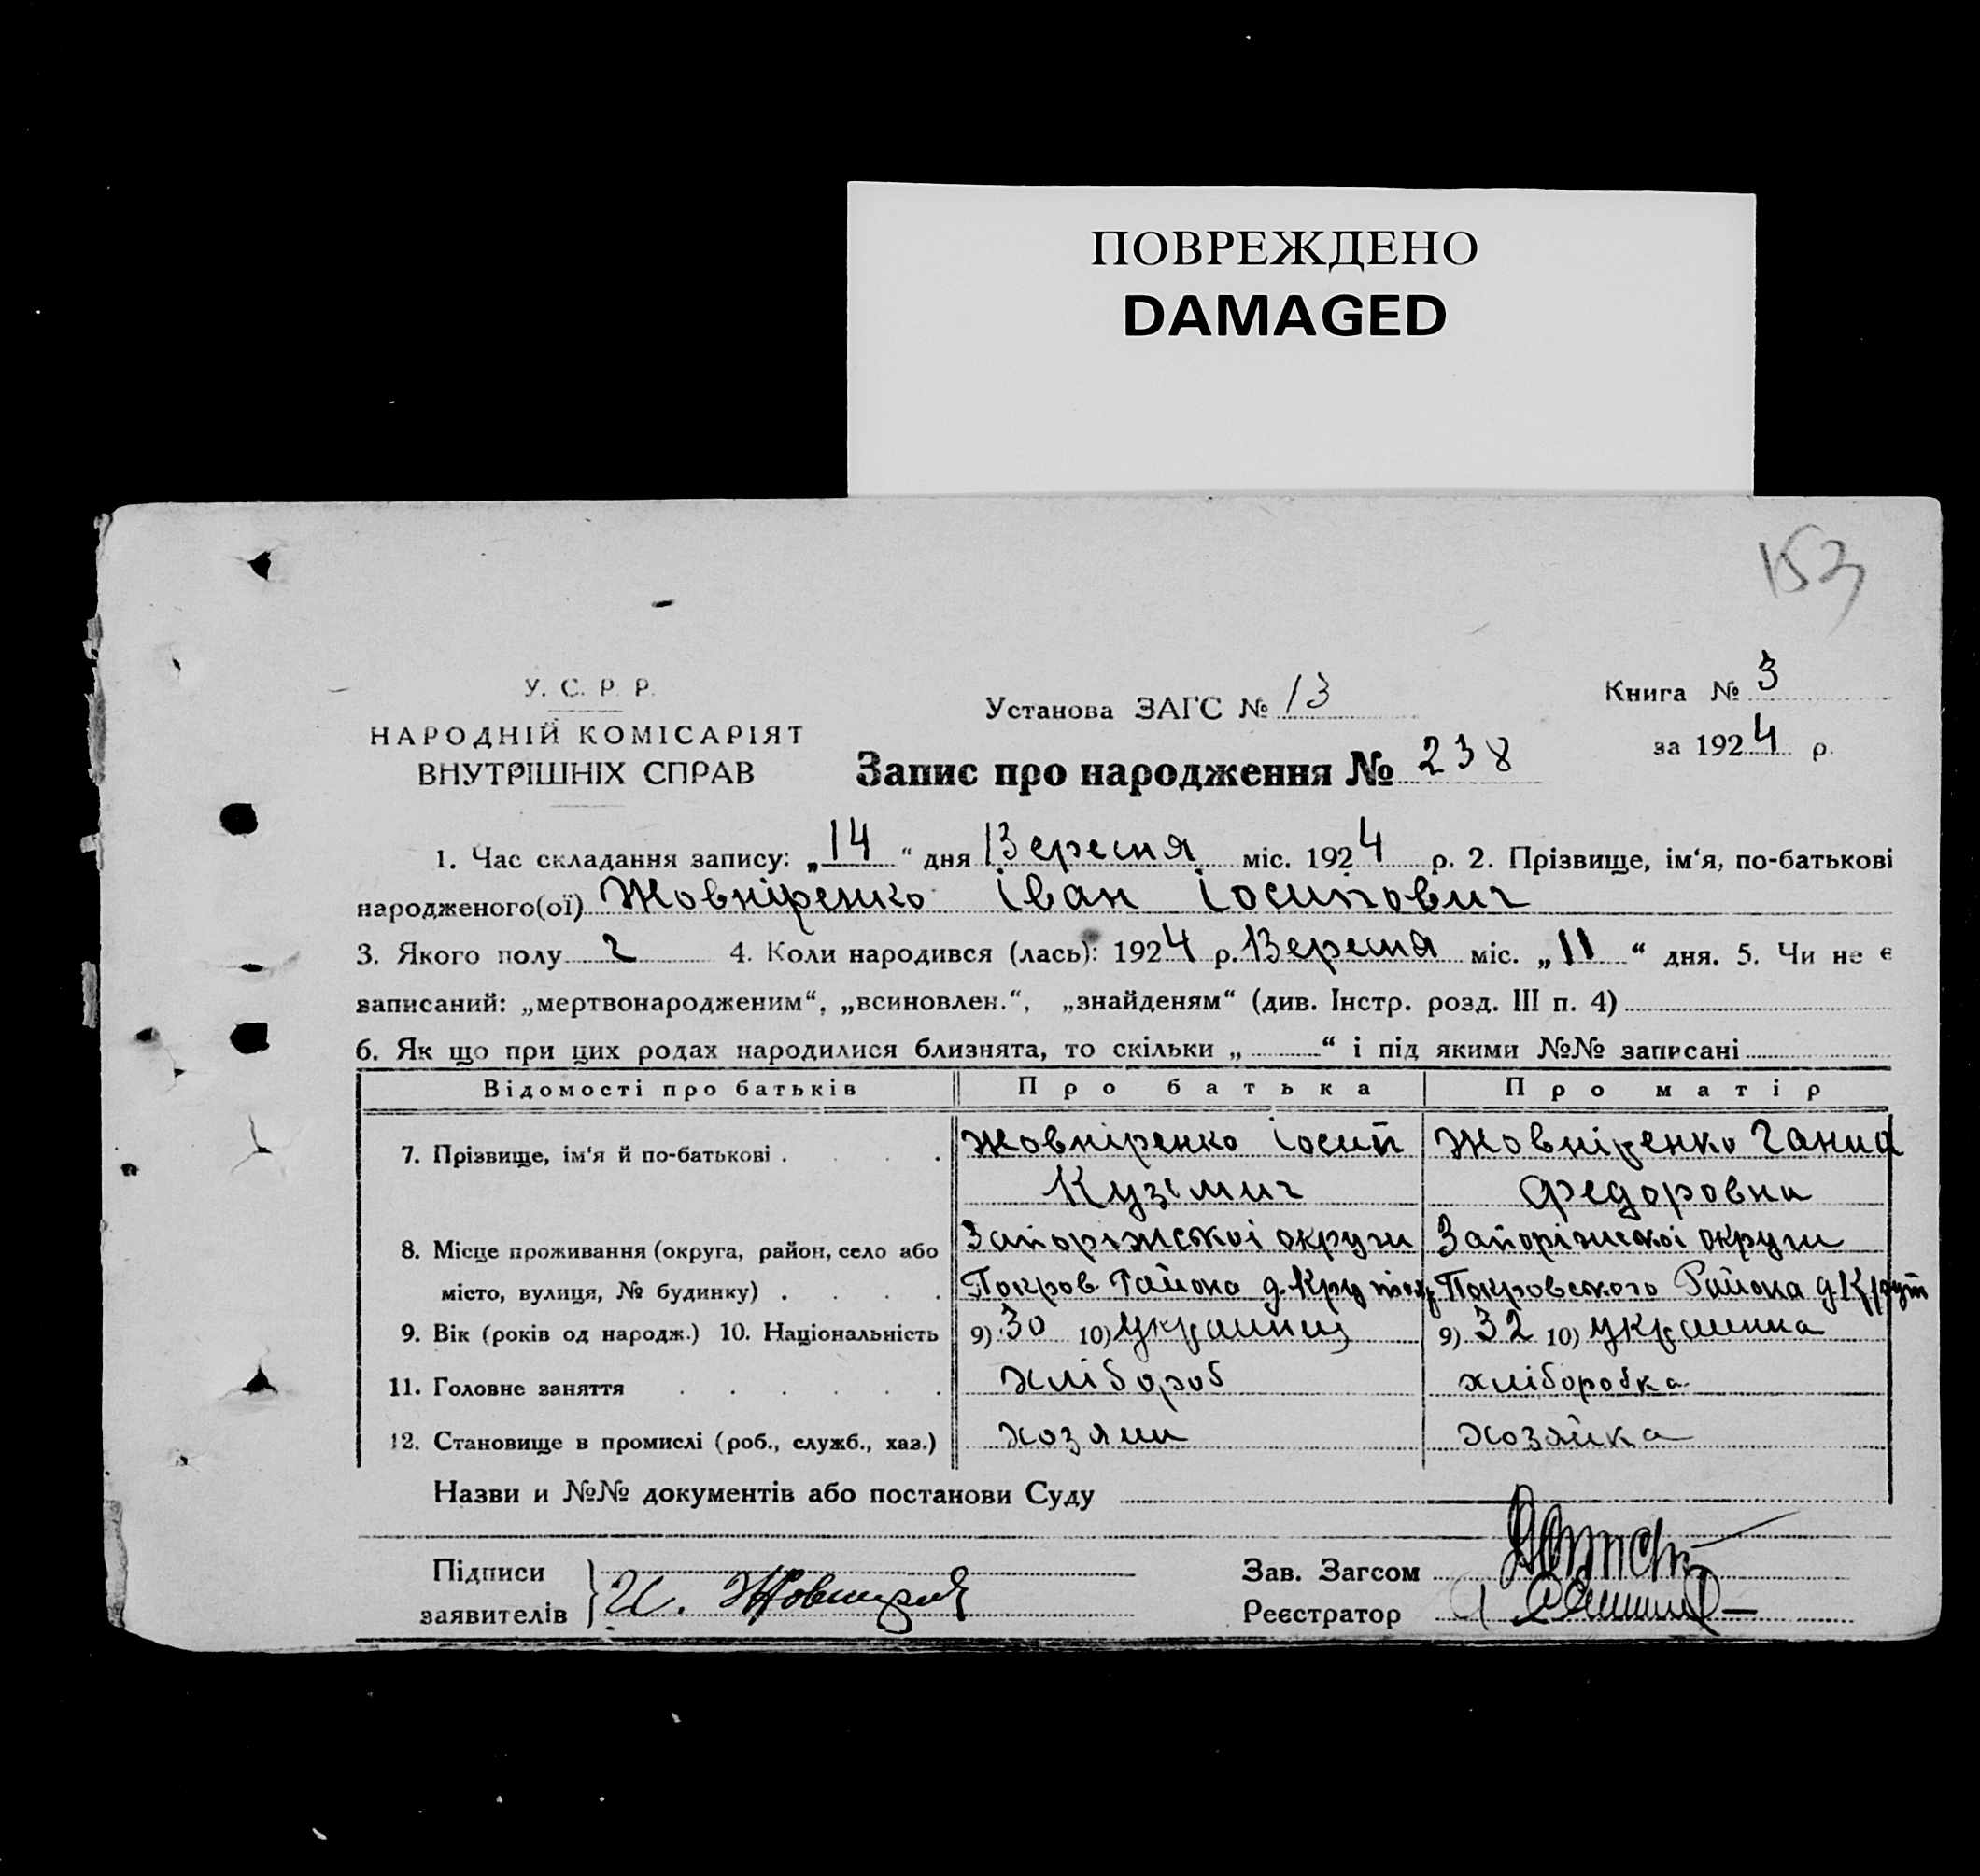 ПОВРЕЖДЕНО
DAMAGED
153
У. С. Р. Р.
НАРОДНІЙ КОМІСАРІЯТ
ВНУТРІШНІХ СПРАВ
Установа ЗАГС № 13
Запис про народження № 238
Книга № 3
за 1924 р.
1. Час складання запису: „14“ дня Вересня міс. 1924 р. 2. Прізвище, ім‘я, по-батькові
народженого(ої) Жовніренко Іван Іосипович
3. Якого полу ч 4. Коли народився (лась): 1924 р. Вересня міс. „11“ дня. 5. Чи не є
записаний: „мертвонародженим“, „всиновлен.“, „знайденям“ (див. Інстр. розд. III п. 4)
6. Як що при цих родах народилися близнята, то скільки „ “ і під якими №№ записані
Відомості про батьків Про батька Про матір
7. Прізвище, ім‘я й по-батькові . . . . Жовніренко Іосип Жовніренко Ганна
Кузьмич Федоровна
8. Місце проживання (округа, район, село або Запоріжської округи Запоріжської округи
місто, вулиця, № будинку) . . . . Покров. Района д. Покровського Района д. Крут
9. Вік (років од народж.) 10. Національність 9) 30 10) украинец 9) 32 10) украинка
11. Головне заняття . . . . . . хлібороб хліборобка
12. Становище в промислі (роб., служб., хаз.) хозяин хозяйка
Назви и №№ документів або постанови Суду
Підписи
заявителів И.
Зав. Загсом
Реєстратор